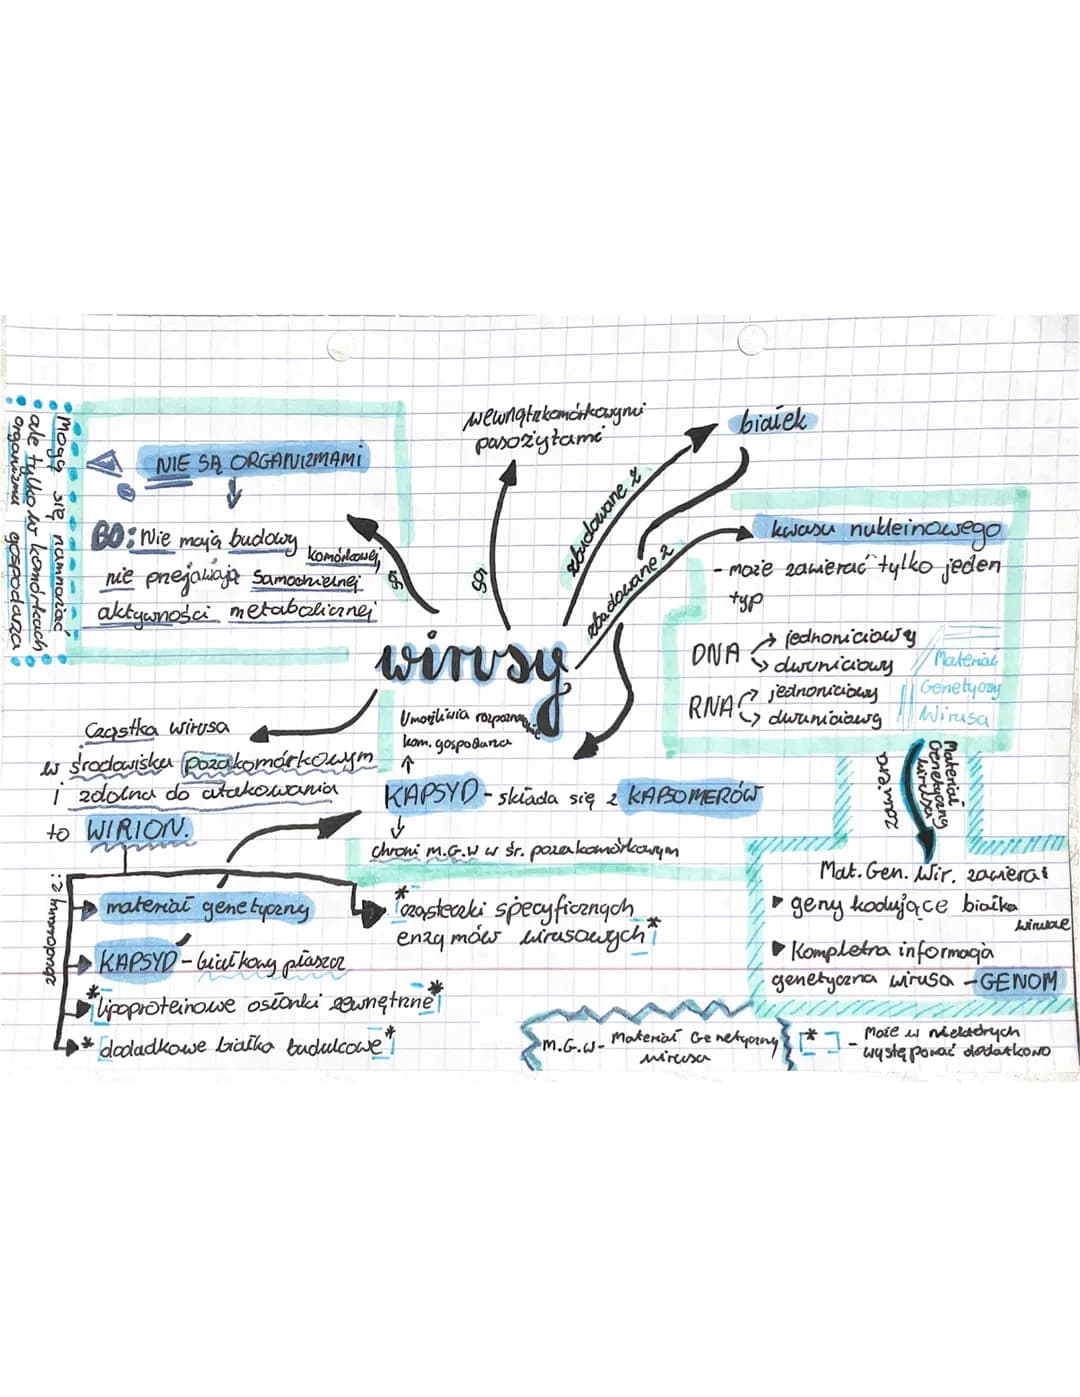 Mogą się namnażać
ale tylko w komórkach
organizmu gospodarza
NIE SĄ ORGANIZMAMI
BO: Nie mają budowy
komórkowej,
nie przejawiają samodzielnej
aktywności metabolicznej
są
wewnątrzkomórkowymi
pasożytami
są
zbudowane z
białek
zbudowane z
kwasu nukleinowego
- może zawierać tylko jeden
typ
DNA → jednoniciowy
↳ dwuniciowy
RNA → jednoniciowy
↳ dwuniciowy
Materiał
Genetyczny
Wirusa
wirusy
Cząstka wirusa
w środowisku pozakomórkowym
i zdolna do atakowania
to WIRION.
Umożliwia rozpoznanie
kom. gospodarza
KAPSYD - składa się z KAPSOMERÓW
chroni m.G.W w śr. pozakomórkowym
zawiera
Materiał
Genetyczny
wirusa
Mat. Gen. Wir. zawiera:
▸ geny kodujące białka
wirusowe
▸ Kompletna informacja
genetyczna wirusa - GENOM
zbudowany z:
materiał genetyczny
KAPSYD - białkowy płaszcz
* lipoproteinowe osłonki zewnętrzne *
* dodadkowe białka budulcowe *
* cząsteczki specyficznych
enzymów wirusowych *
M.G.W - Materiał Genetyczny
wirusa
* [ ] - Może w niektórych
występować dodatkowo